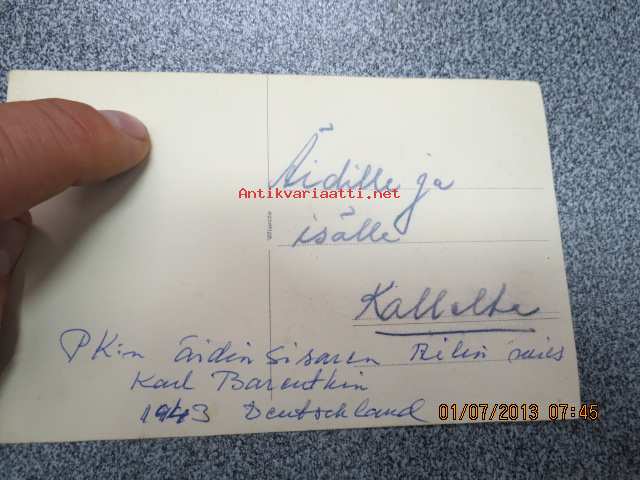 Äidille ja
Antikvariaatti.net
isälle
Kallelta
PK:n äidin sisaren mies
Karl Barenthin
1943 Deutschland
01/07/2013 07:45